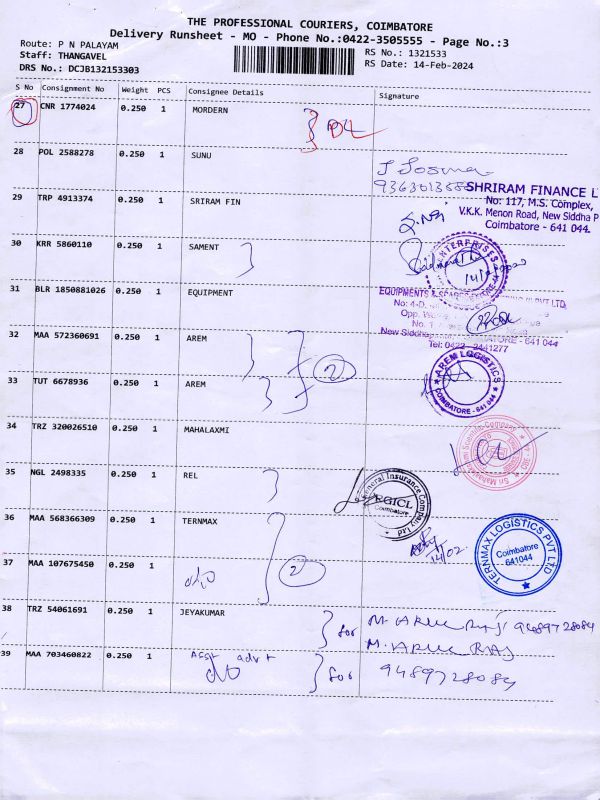 THE PROFESSIONAL COURIERS, COIMBATORE
Delivery Runsheet - MO - Phone No.:0422-3505555 - Page No.:3
Route: P N PALAYAM
Staff: THANGAVEL
DRS No.: DCJB132153303
RS No.: 1321533
RS Date: 14-Feb-2024
S No Consignment No Weight PCS Consignee Details Signature
27 CNR 1774024 0.250 1 MORDERN
28 POL 2588278 0.250 1 SUNU
29 TRP 4913374 0.250 1 SRIRAM FIN
SHRIRAM FINANCE L
No: 117, M.S. Complex,
V.K.K. Menon Road, New Siddha P
Coimbatore - 641 044.
30 KRR 5860110 0.250 1 SAMENT
ENTERPRISES
31 BLR 1850881026 0.250 1 EQUIPMENT
EQUIPMENTS & PVT LTD
No: 4-D,
Opp.
No. 1
New - 641 044
Tel: 0422 - 2441277
32 MAA 572360691 0.250 1 AREM
33 TUT 6678936 0.250 1 AREM
2
AREM LOGISTICS
COIMBATORE - 641 044
34 TRZ 320026510 0.250 1 MAHALAXMI
35 NGL 2498335 0.250 1 REL
General Insurance Company Ltd
EGICL
Coimbatore
36 MAA 568366309 0.250 1 TERNMAX
14/02
TERNMAX LOGISTICS PVT LTD
Coimbatore
641044
37 MAA 107675450 0.250 1 do
2
38 TRZ 54061691 0.250 1 JEYAKUMAR
for M. ARUL RAJ 9489728084
M. ARUL RAJ
39 MAA 703460822 0.250 1 do
for 9489728084